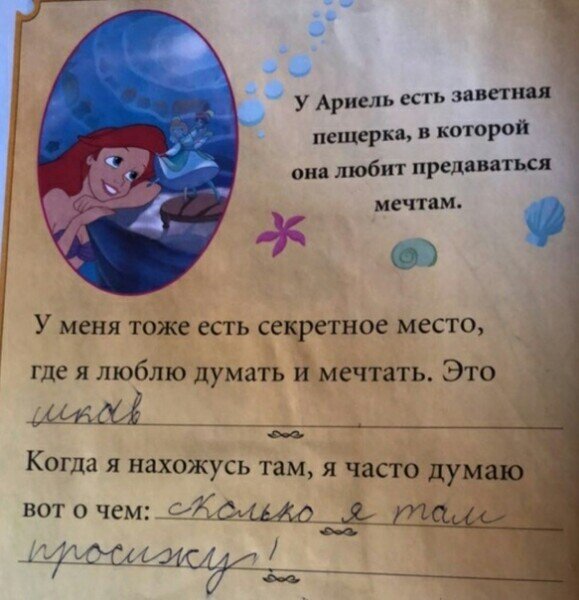 У Ариель есть заветная
пещерка, в которой
она любит предаваться
мечтам.
У меня тоже есть секретное место,
где я люблю думать и мечтать. Это
шкав
Когда я нахожусь там, я часто думаю
вот о чем: сколько я там
просижу!